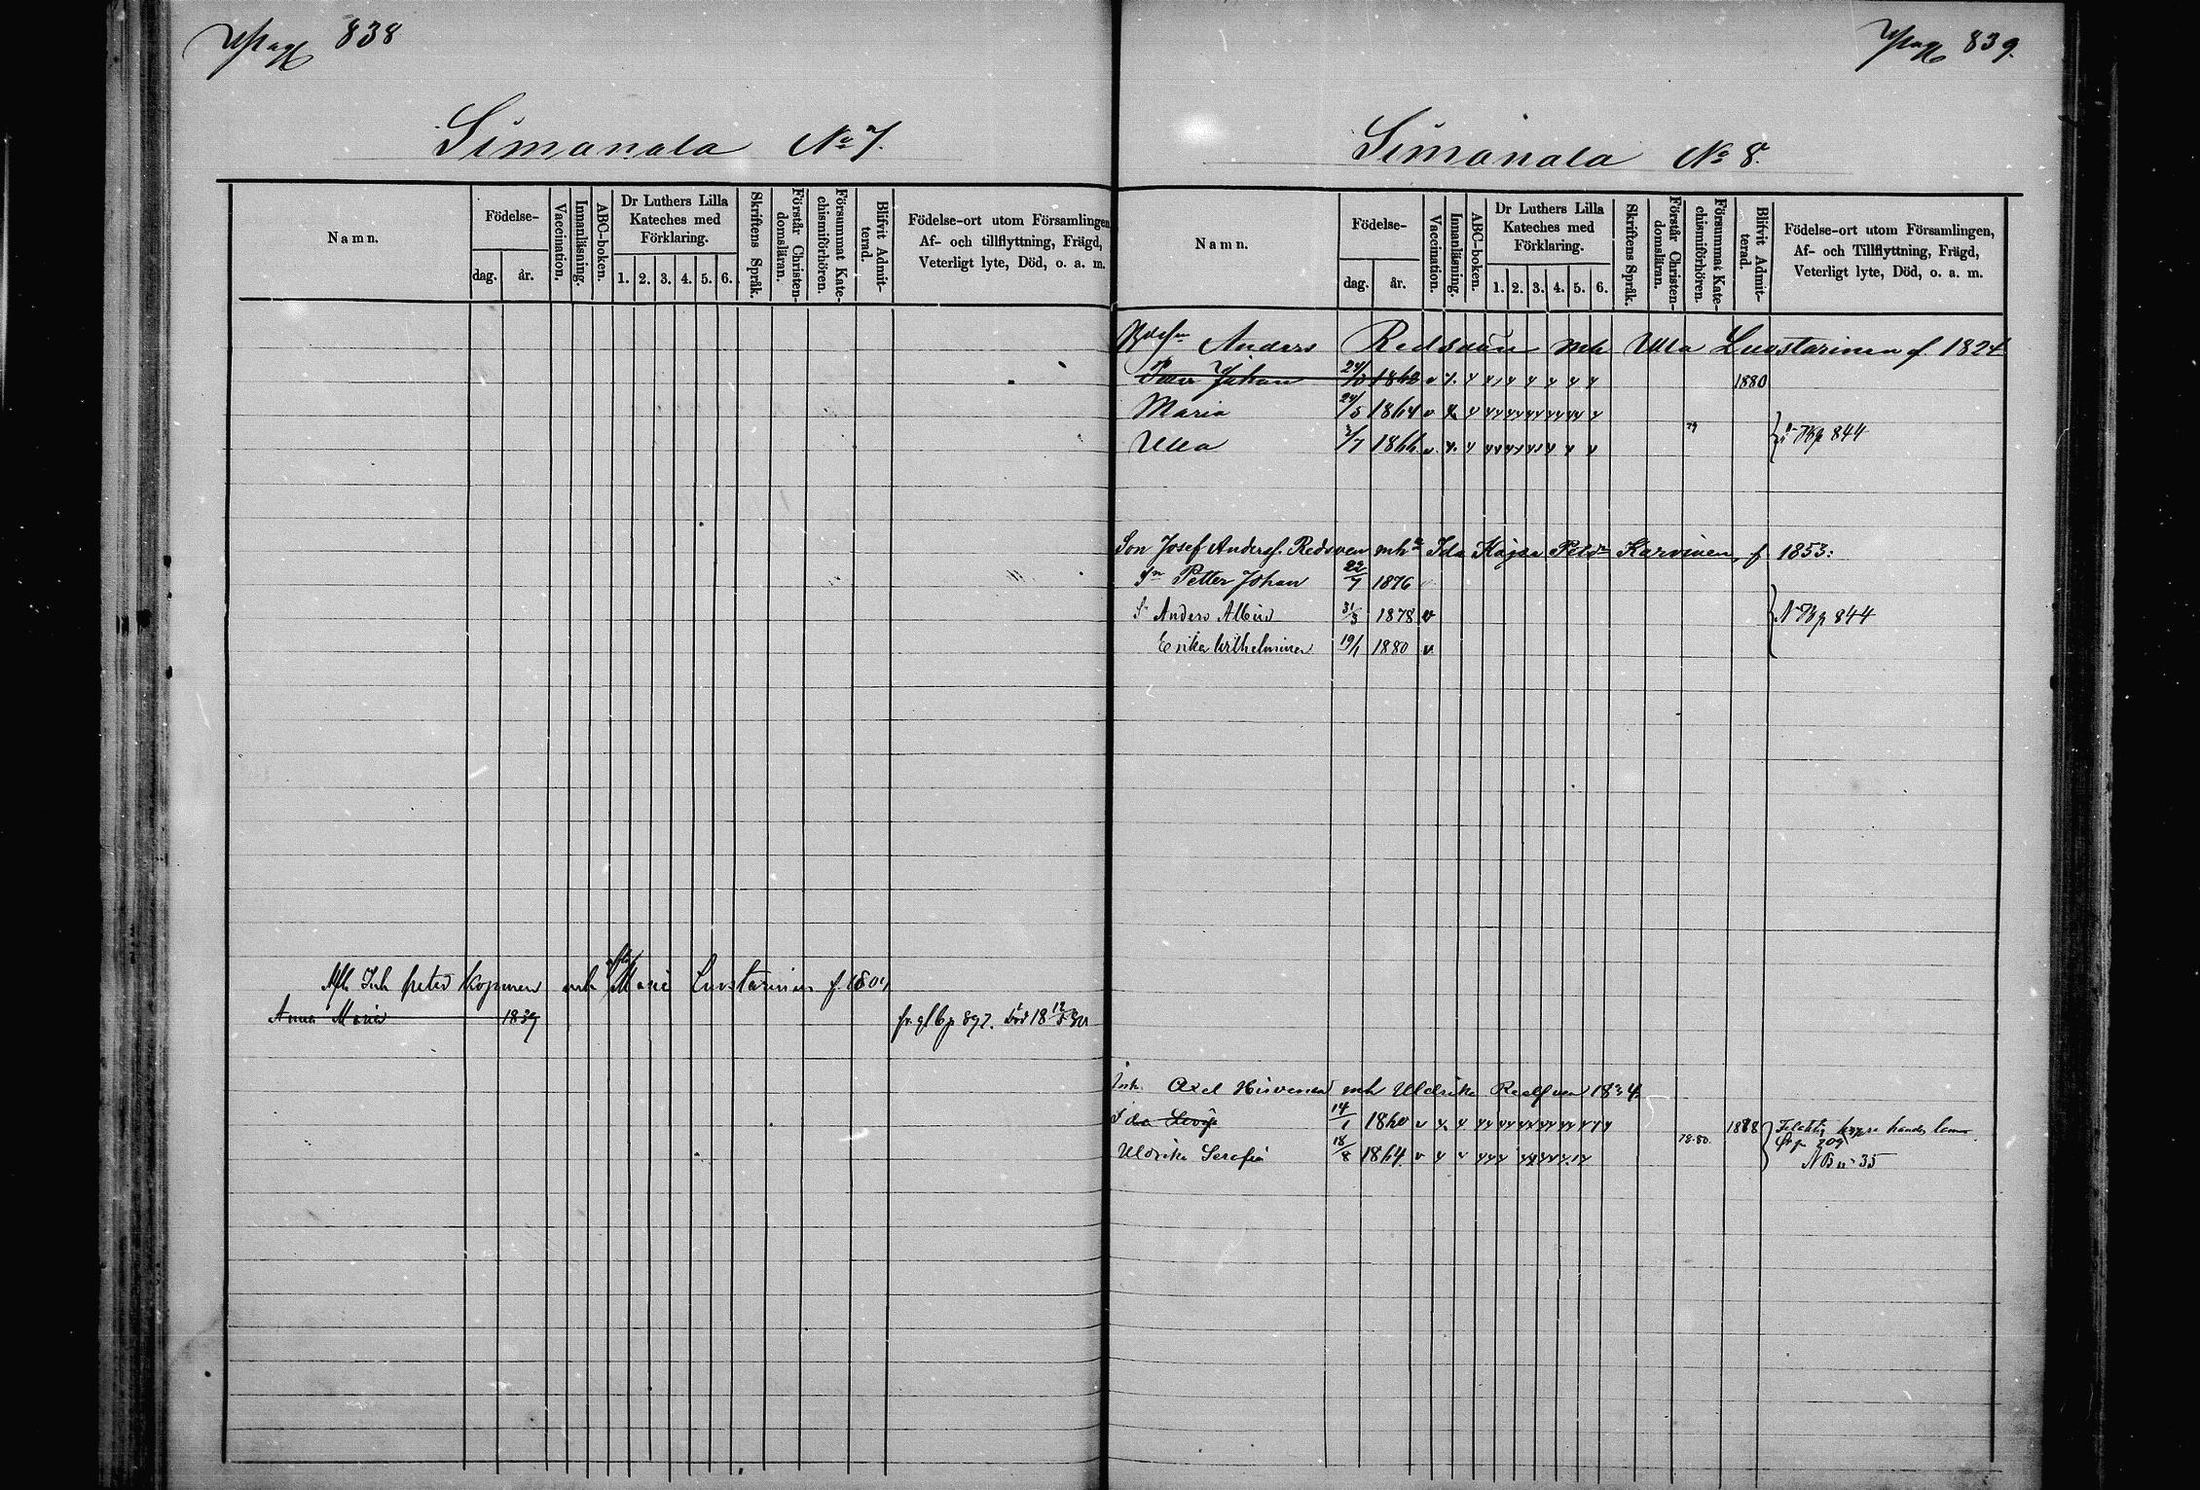 838
Simanala No 7.
Namn.
Födelse-
dag.
år.
Vaccination.
Innanläsning.
ABC-boken.
Dr Luthers Lilla
Kateches med
Förklaring.
1. 2. 3. 4. 5. 6.
Skriftens Språk.
Förstår Christen-
domsläran.
Försummat Kate-
chismiförhören.
Blifvit Admit-
terad.
Födelse-ort utom Församlingen
Af- och tillflyttning, Frägd,
Veterligt lyte, Död, o. a. m.
Inh Petter Kopinen enk Marie Luostarinen f. 180
Anna Maria 1839 p 892. Död 18
839.
Simanala No 8.
Namn.
Födelse-
dag.
år.
Vaccination.
Innanläsning.
ABC-boken.
Dr Luthers Lilla
Kateches med
Förklaring.
1. 2. 3. 4. 5. 6.
Skriftens Språk.
Förstår Christen-
domsläran.
Försummat Kate-
chismiförhören.
Blifvit Admit-
terad.
Födelse-ort utom Församlingen,
Af- och Tillflyttning, Frägd,
Veterligt lyte, Död, o. a. m.
Anders Redsven mh Ulla Luostarinen f. 1824
Petter Johan 1862 1880
Maria 24/5 1864
Ulla 2/7 1866 844
Son Josef Anders. Redsven mh Ida Kajsa Petd Karvinen, f 1853:
Sn Petter Johan 22/7 1876
S Anders Albin 31/3 1878 v N Bp 844
Erika Wilhelmina 19/1 1880 v
Inh. Axel Hirvonen mh Uldrika Redsven 1834
Ida Lovisa 14/1 1860 1878
78.80. 209
Uldrika Serafia 18/8 1864 NB n 35